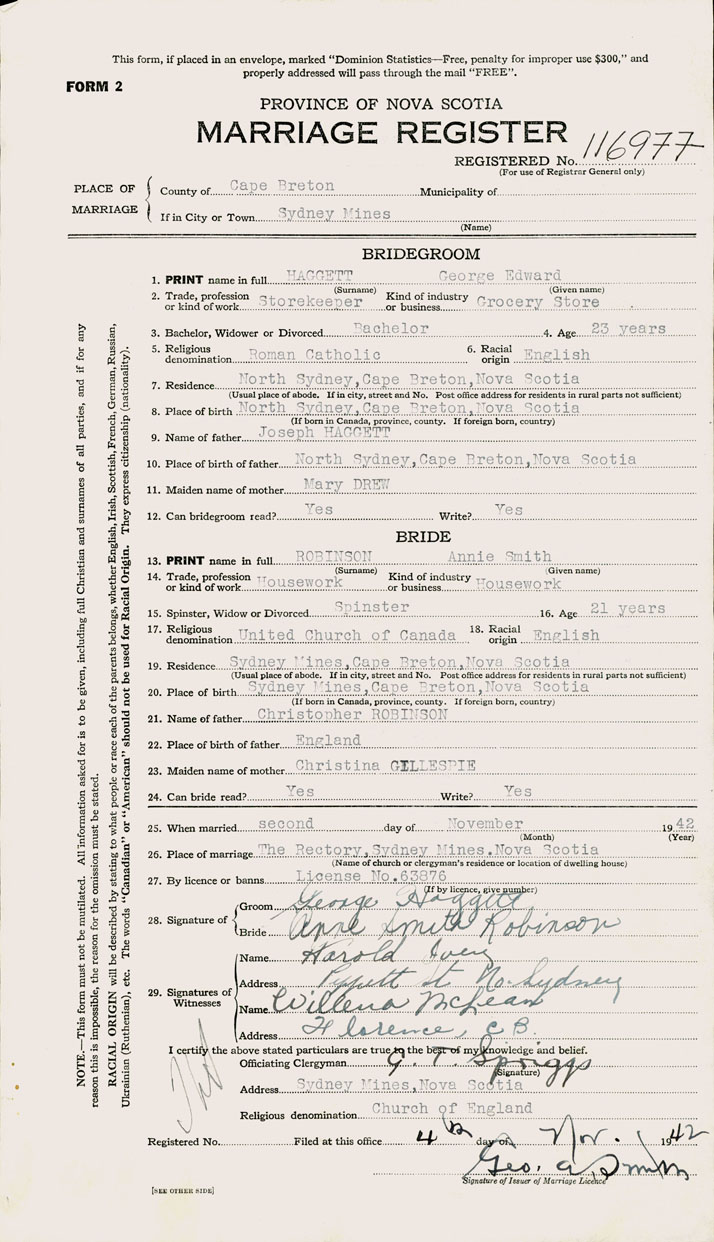 This form, if placed in an envelope, marked "Dominion Statistics—Free, penalty for improper use $300," and
properly addressed will pass through the mail "FREE".
FORM 2
PROVINCE OF NOVA SCOTIA
MARRIAGE REGISTER
REGISTERED No. 116977
(For use of Registrar General only)
PLACE OF MARRIAGE
County of Cape Breton Municipality of
If in City or Town Sydney Mines
(Name)
BRIDEGROOM
1. PRINT name in full HAGGETT George Edward
(Surname) (Given name)
2. Trade, profession or kind of work Storekeeper Kind of industry or business Grocery Store
3. Bachelor, Widower or Divorced Bachelor 4. Age 23 years
5. Religious denomination Roman Catholic 6. Racial origin English
7. Residence North Sydney, Cape Breton, Nova Scotia
(Usual place of abode. If in city, street and No. Post office address for residents in rural parts not sufficient)
8. Place of birth North Sydney, Cape Breton, Nova Scotia
(If born in Canada, province, county. If foreign born, country)
9. Name of father Joseph HAGGETT
10. Place of birth of father North Sydney, Cape Breton, Nova Scotia
11. Maiden name of mother Mary DREW
12. Can bridegroom read? Yes Write? Yes
BRIDE
13. PRINT name in full ROBINSON Annie Smith
(Surname) (Given name)
14. Trade, profession or kind of work Housework Kind of industry or business Housework
15. Spinster, Widow or Divorced Spinster 16. Age 21 years
17. Religious denomination United Church of Canada 18. Racial origin English
19. Residence Sydney Mines, Cape Breton, Nova Scotia
(Usual place of abode. If in city, street and No. Post office address for residents in rural parts not sufficient)
20. Place of birth Sydney Mines, Cape Breton, Nova Scotia
(If born in Canada, province, county. If foreign born, country)
21. Name of father Christopher ROBINSON
22. Place of birth of father England
23. Maiden name of mother Christina GILLESPIE
24. Can bride read? Yes Write? Yes
25. When married second day of November 1942
(Month) (Year)
26. Place of marriage The Rectory, Sydney Mines. Nova Scotia
(Name of church or clergyman's residence or location of dwelling house)
27. By licence or banns License No. 63876
(If by licence, give number)
28. Signature of
Groom George Haggett
Bride Anne Smith Robinson
29. Signatures of Witnesses
Name Harold Ivey
Address St No. Sydney
Name Willena McLean
Address Florence, C B.
I certify the above stated particulars are true to the best of my knowledge and belief.
Officiating Clergyman G. T. Spriggs
(Signature)
Address Sydney Mines, Nova Scotia
Religious denomination Church of England
Registered No. Filed at this office 4th day of Nov. 1942
Geo. A Smith
Signature of Issuer of Marriage Licence
[SEE OTHER SIDE]
NOTE.—This form must not be mutilated. All information asked for is to be given, including full Christian and surnames of all parties, and if for any
reason this is impossible, the reason for the omission must be stated.
RACIAL ORIGIN will be described by stating to what people or race each of the parents belongs, whether English, Irish, Scottish, French, German, Russian,
Ukrainian (Ruthenian), etc. The words "Canadian" or "American" should not be used for Racial Origin. They express citizenship (nationality).